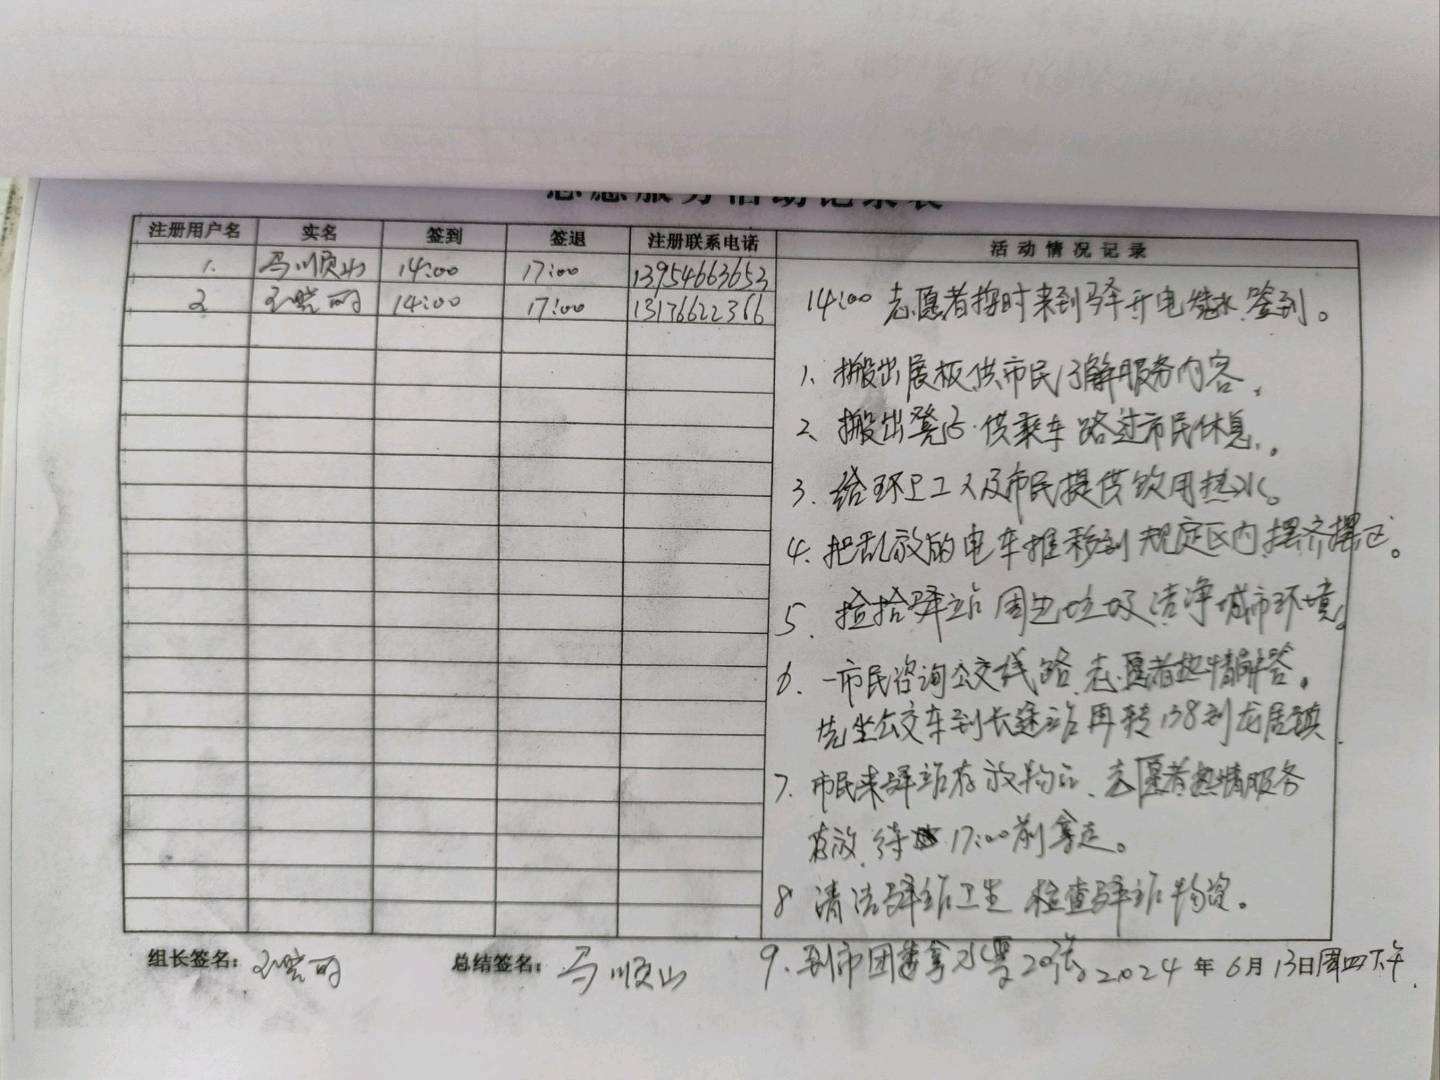 志愿服务活动记录表
注册用户名 实名 签到 签退 注册联系电话 活动情况记录
1. 马顺山 14:00 17:00 13954663653
2 王晓丽 14:00 17:00 13176622366
14:00 志愿者按时来到驿开电烧水、签到。
1、搬出展板供市民了解服务内容。
2、搬出凳子、供乘车路过市民休息。
3. 给环卫工人及市民提供饮用热水。
4. 把乱放的电车推移到规定区内,摆齐摆正。
5. 捡拾驿站周边垃圾洁净城市环境。
6. 一市民咨询公交线路、志愿者热情解答。
先坐公交车到长途站再转138到龙居镇.
7. 市民来驿站存放物品、志愿者热情服务
存放,待 17:00前拿走。
8 清洁驿站卫生 检查驿站物资。
9. 到市团委拿水票20张。
组长签名: 王晓丽 总结签名: 马顺山 2024年6月13日周四下午.